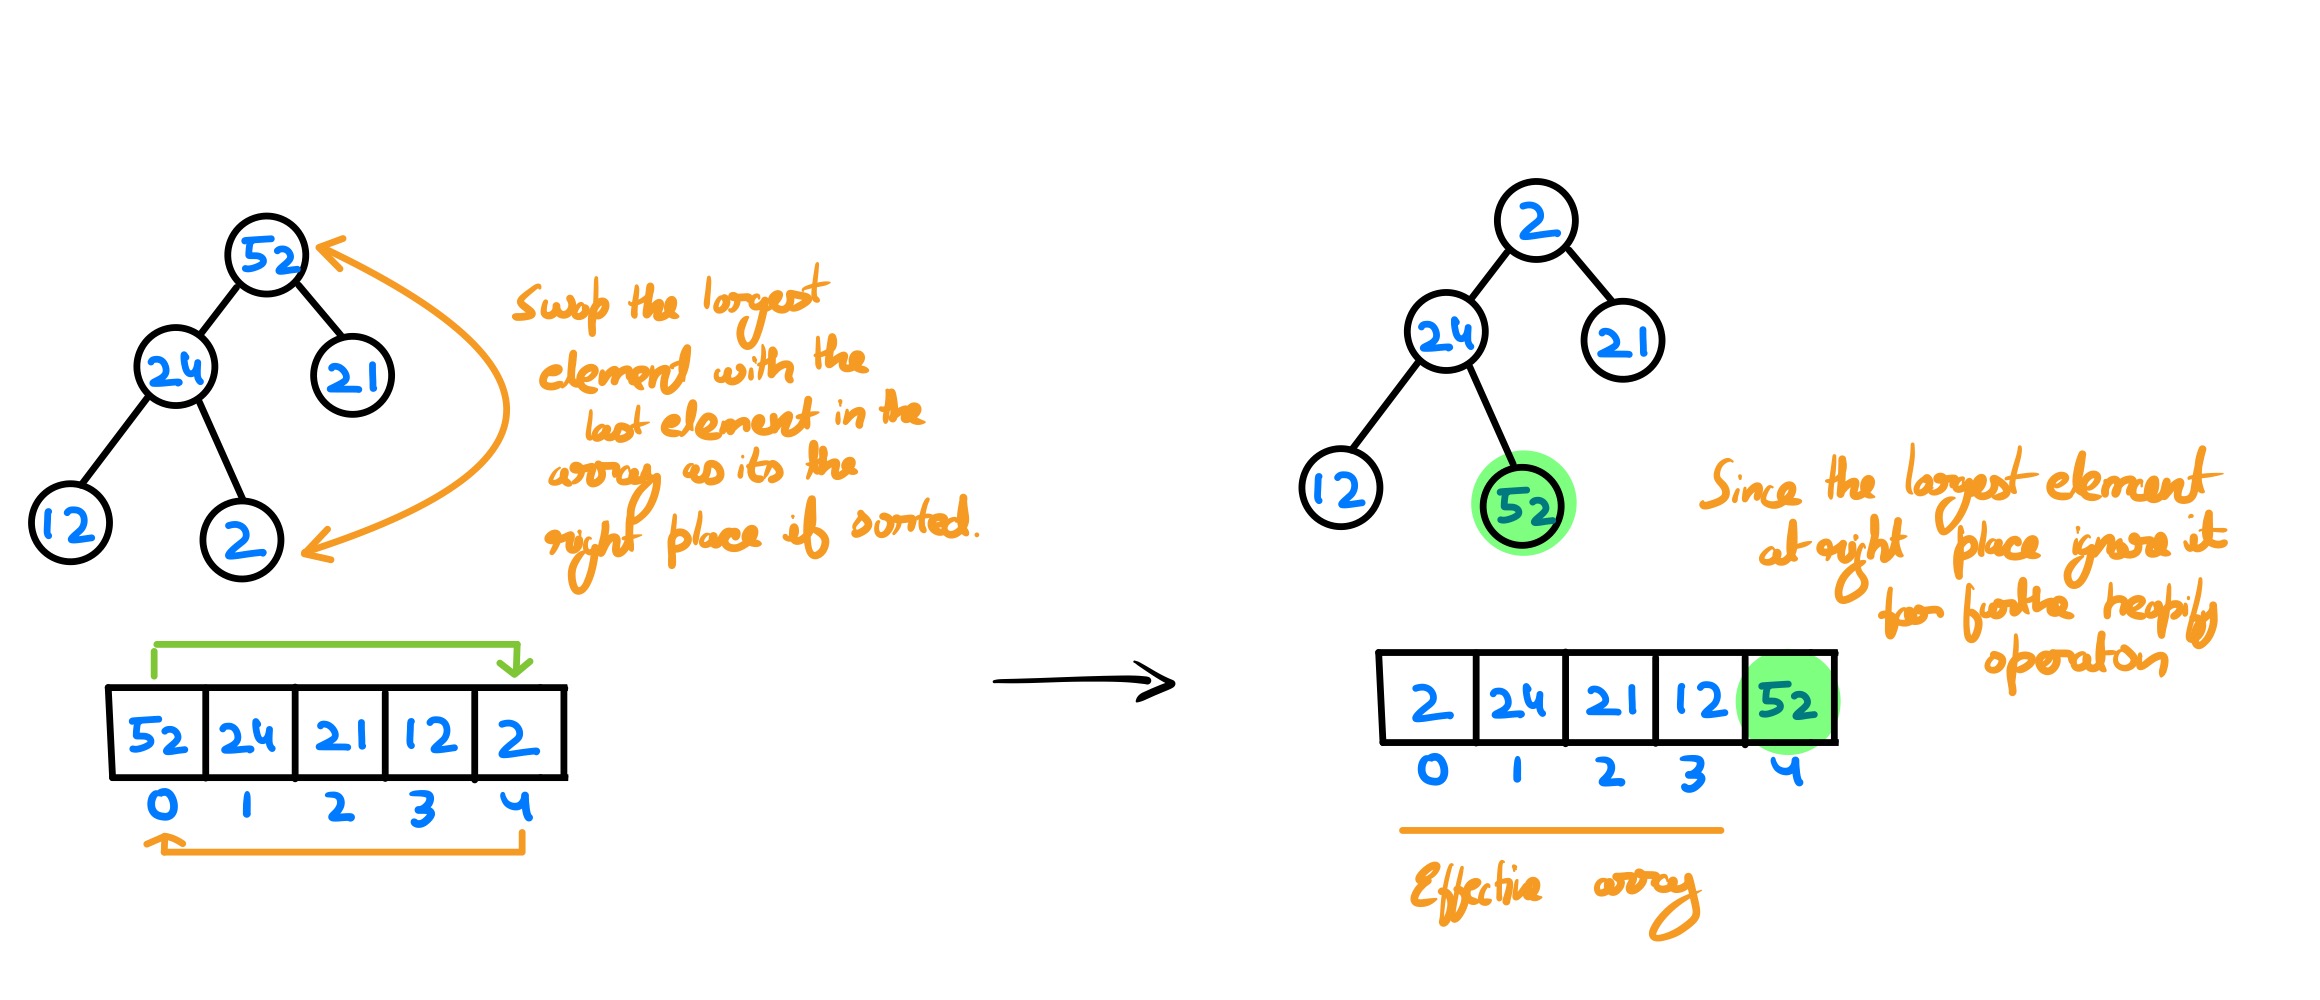 52
24
21
12
2
Swap the largest
element with the
last element in the
array as its the
right place if sorted.
52 24 21 12 2
0 1 2 3 4
2
24
21
12
52
Since the largest element
at right place ignore it
for furthe heapify
operation
2 24 21 12 52
0 1 2 3 4
Effective array